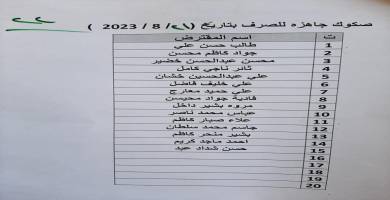 ٢٢
صكوك جاهزه للصرف بتاريخ (٢١/ 8 / 2023 )
ت اسم المقترض
1 طالب حسن علي
2 جواد كاظم محسن
3 محسن عبدالحسن خضير
4 ثائر ناجي كامل
5 علي عبدالحسين خشان
6 علي خليف فاضل
7 علي حميد معارج
8 فادية جواد محيسن
9 مروه بشير داخل
10 عباس محمد ناصر
11 علاء صبار كاظم
12 جاسم محمد سلطان
13 بشير منخر كاظم
14 احمد ماجد كريم
15 حسن شداد عبد
16
17
18
19
20